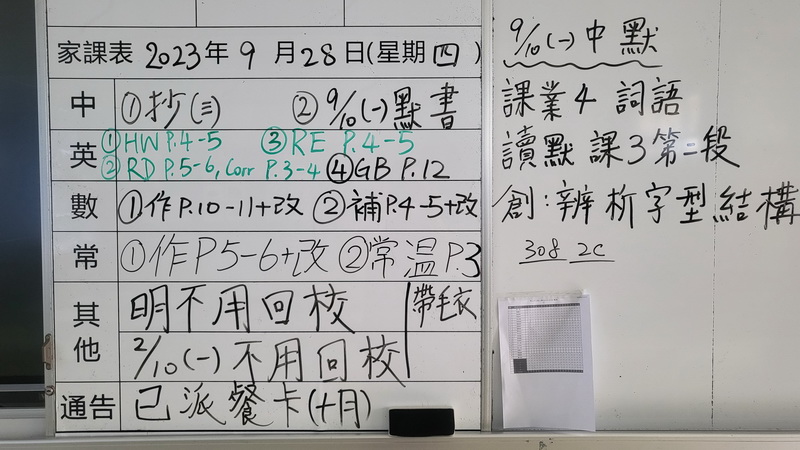 家課表 2023年 9月28日(星期四)
中 ①抄(三) ② 9/10(一)默書
英 ①HW P.4-5 ③RE P.4-5
②RD P.5-6, Corr P.3-4 ④GB P.12
數 ①作P.10-11+改 ②補P.4-5+改
常 ①作P5-6+改 ②常溫P.3
其他 明不用回校 帶毛衣
2/10(一)不用回校
通告 已派餐卡(十月)
9/10(一)中默
課業4 詞語
讀默 課3第二段
創:辨析字型結構
308 2C